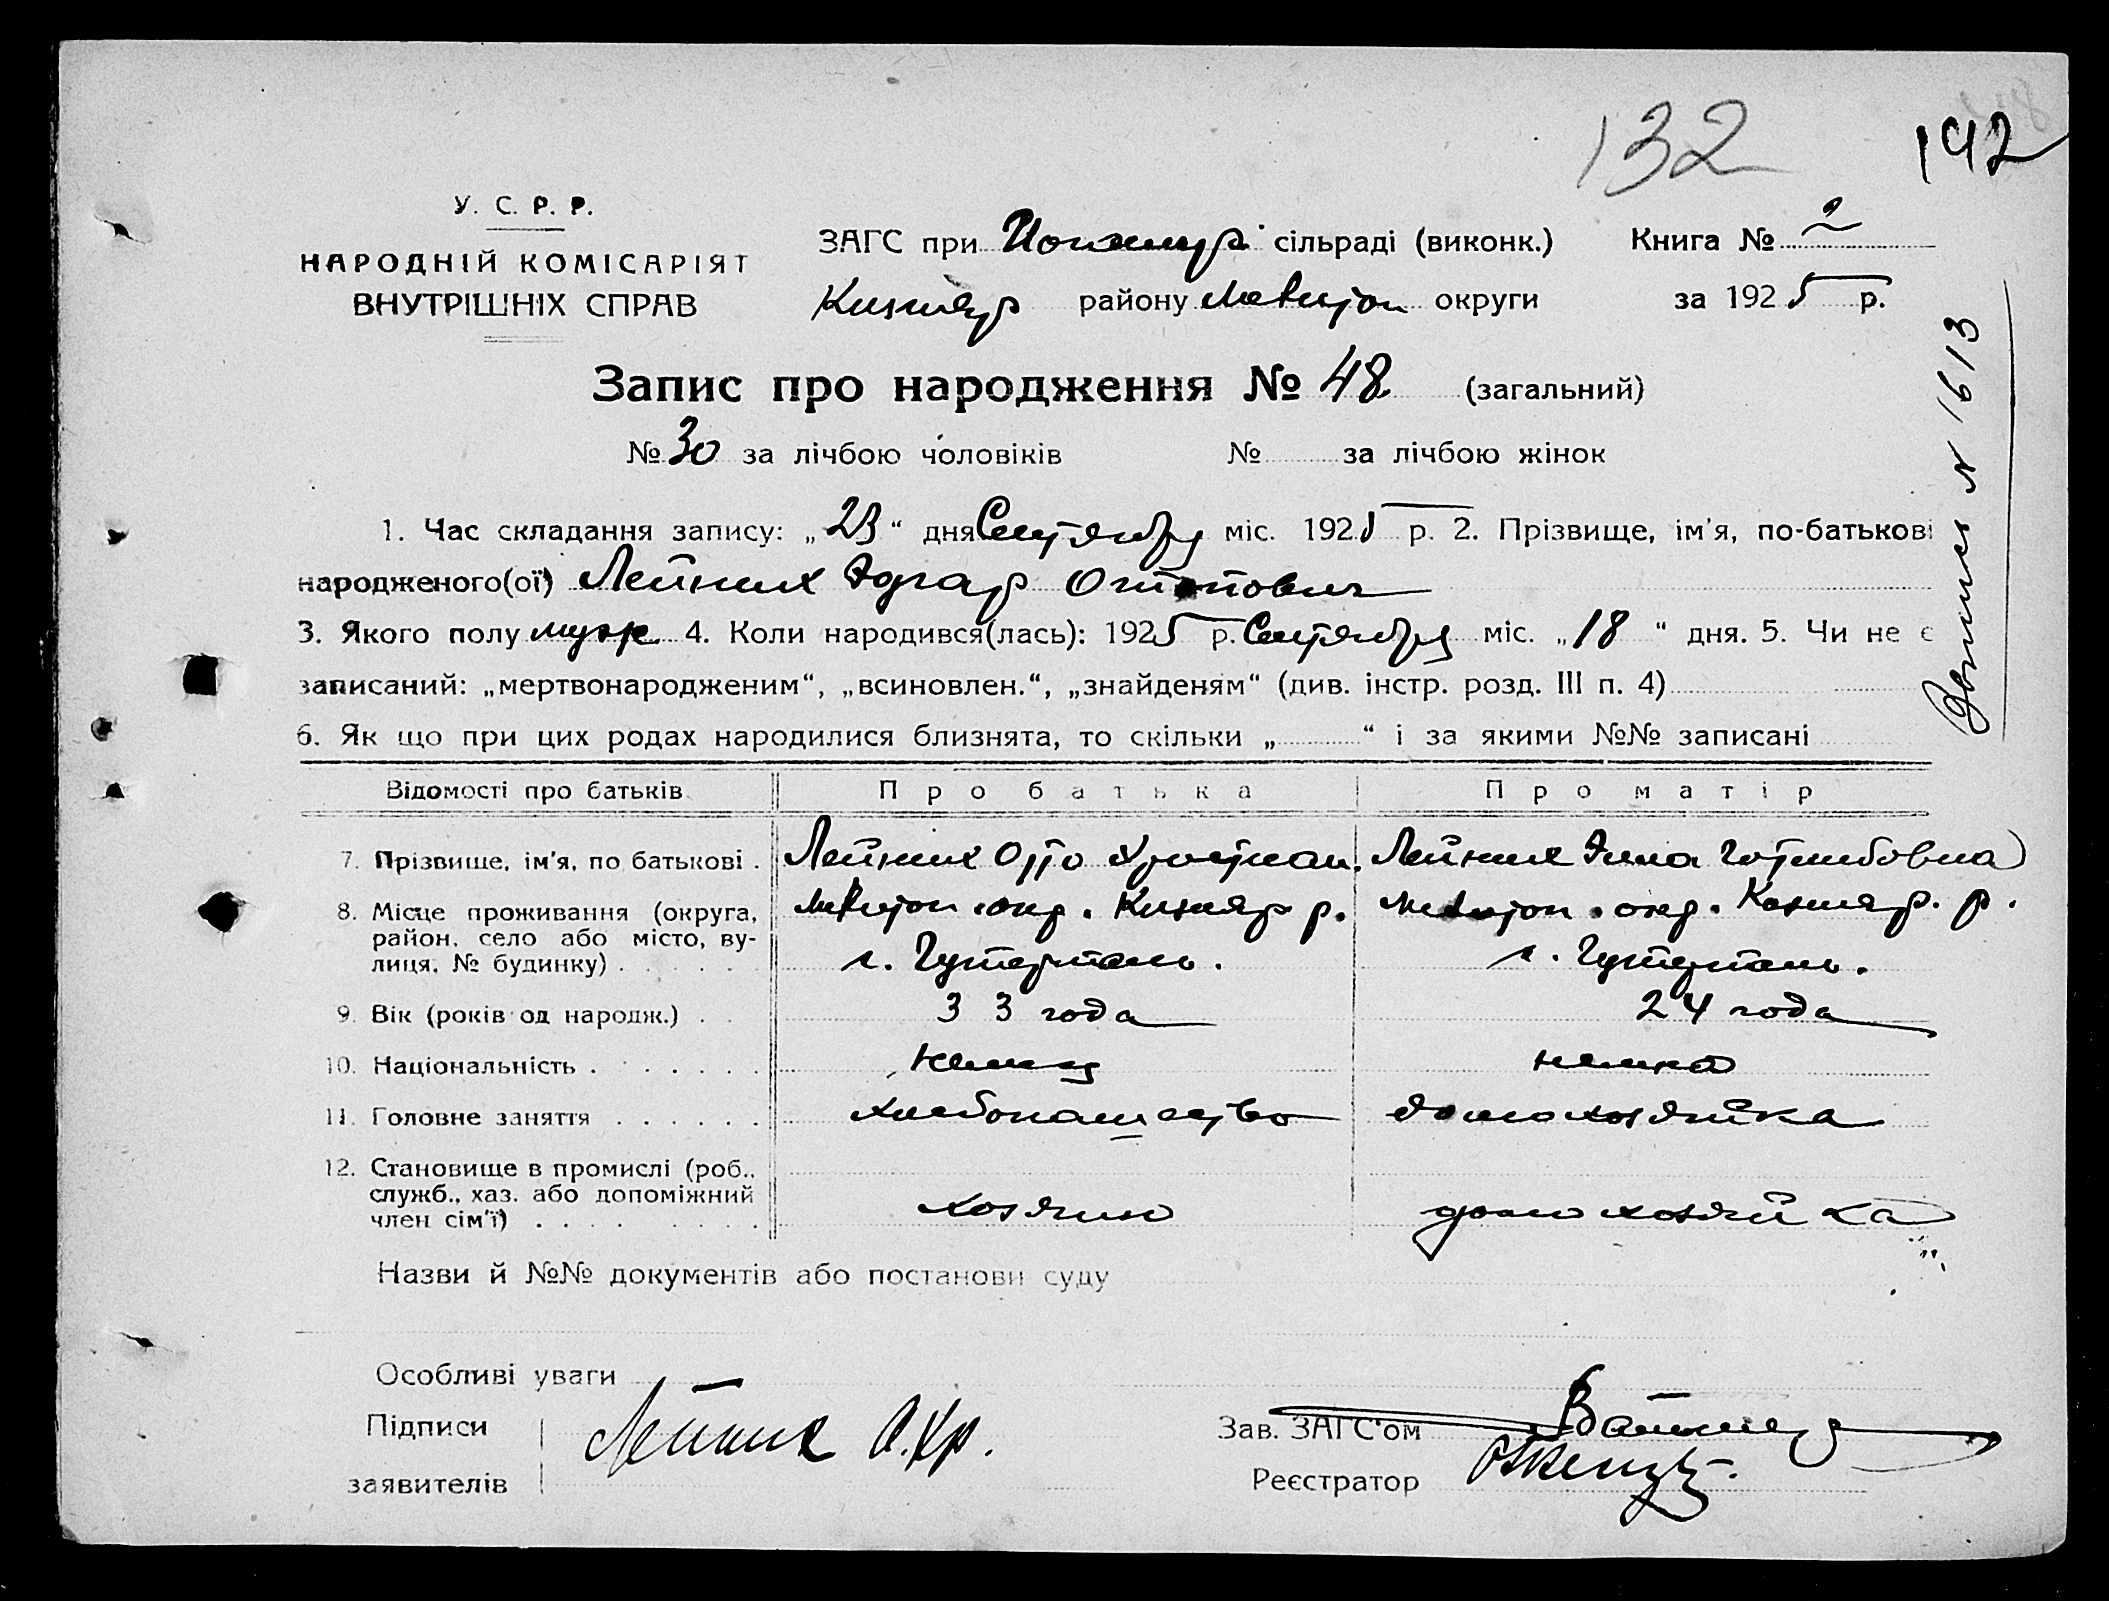 132
192
У. С. Р. Р.
НАРОДНІЙ КОМІСАРІЯТ
ВНУТРІШНІХ СПРАВ
ЗАГС при сільраді (виконк.) Книга № 2
Кизияр району Мелитоп округи за 1925 р.
Запис про народження № 48 (загальний)
№ 30 за лічбою чоловіків № за лічбою жінок
1. Час складання запису: „23“ дня Сентября міс. 1925 р. 2. Прізвище, ім'я, по-батькові
народженого(ої) Лейних Эдгар Оттович
3. Якого полу муж. 4. Коли народився(лась): 1925 р. Сентября міс. „18“ дня. 5. Чи не є
записаний: „мертвонародженим“, „всиновлен.“, „знайденям“ (див. інстр. розд. III п. 4)
6. Як що при цих родах народилися близнята, то скільки „ “ і за якими №№ записані
№ 1613
Відомості про батьків Про батька Про матір
7. Прізвище, ім'я, по батькові . Лейних Отто Христиан. Лейних Эмма Готлибовна
8. Місце проживання (округа, Мелитоп. окр. Кизияр р. Мелитоп. окр. Кизияр. р.
район, село або місто, ву-
лиця, № будинку) . . . . . к. Гутерталь. к. Гутерталь.
9. Вік (років од народж.) . . 33 года 24 года
10. Національність . . . . . . . немец немка
11. Головне заняття . . . . . . хлебопашество домохозяйка
12. Становище в промислі (роб.,
служб., хаз. або допоміжний
член сім'ї) . . . . . . . . . хозяин домохозяйка
Назви й №№ документів або постанови суду
Особливі уваги
Підписи
заявителів
Лейних О.Хр.
Зав. ЗАГС'ом
Реєстратор